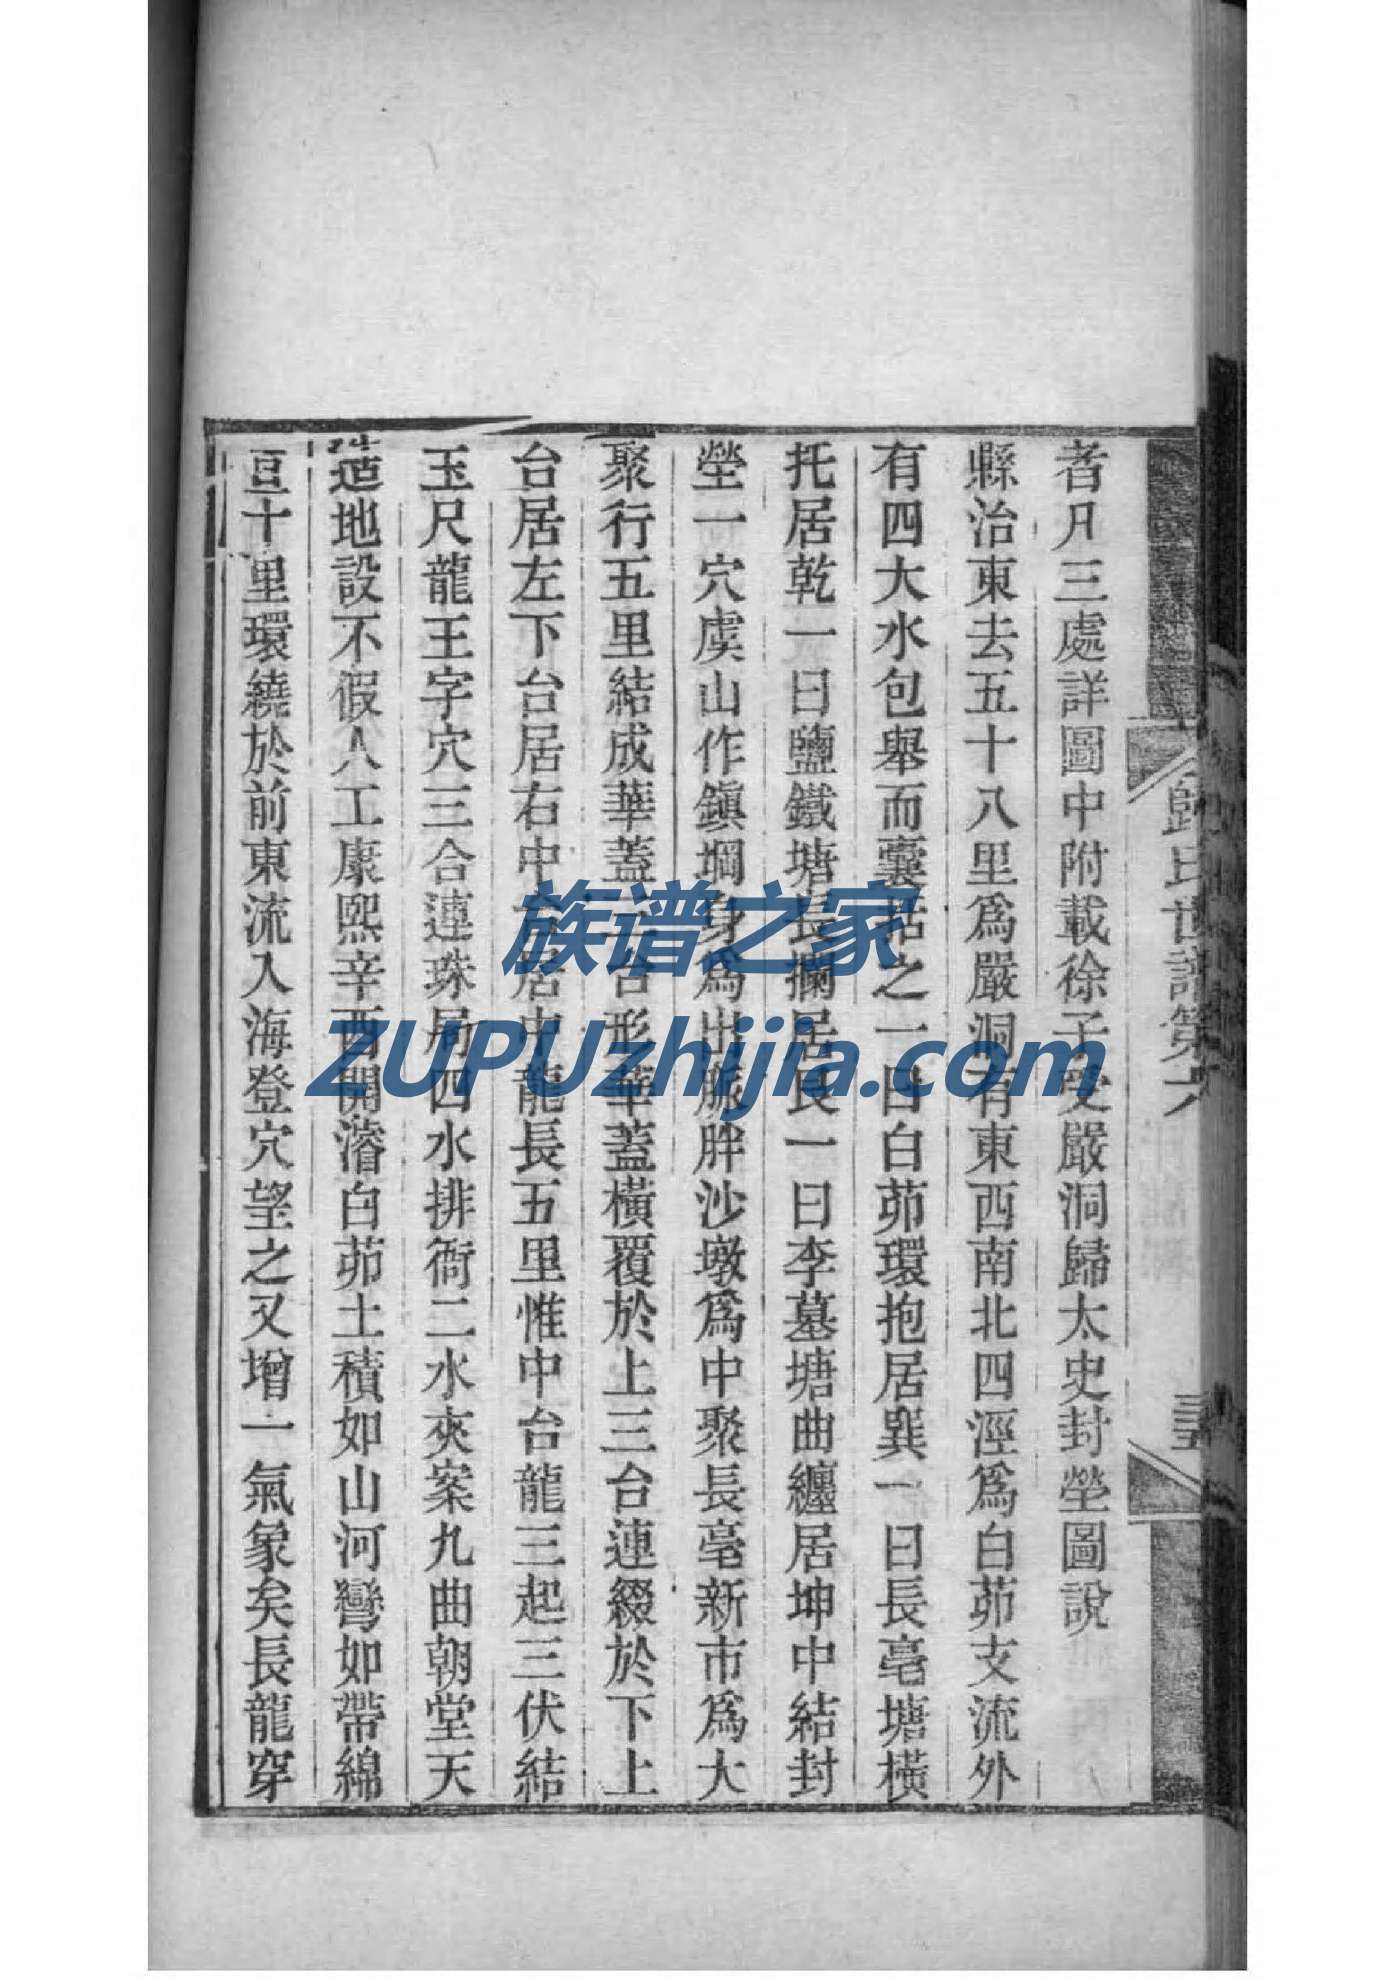 歸氏世譜第六
者凡三處詳圖中附載徐子受嚴洞歸太史封塋圖說
縣治東去五十八里爲嚴洞有東西南北四涇爲白茆支流外
有四大水包舉而囊括之一曰白茆環抱居巽一曰長亳塘橫
托居乾一曰鹽鐵塘長攔居艮一曰李墓塘曲纏居坤中結封
塋一穴虞山作鎮堈身爲出脈胖沙墩爲中聚長亳新市爲大
聚行五里結成華蓋三台形華蓋橫覆於上三台連綴於下上
台居左下台居右中台居中龍長五里惟中台龍三起三伏結
玉尺龍王字穴三合連珠局四水排衙二水夾案九曲朝堂天
造地設不假人工康熙辛酉開濬白茆土積如山河彎如帶綿
亘十里環繞於前東流入海登穴望之又增一氣象矣長龍穿
族谱之家
ZUPUzhijia.com